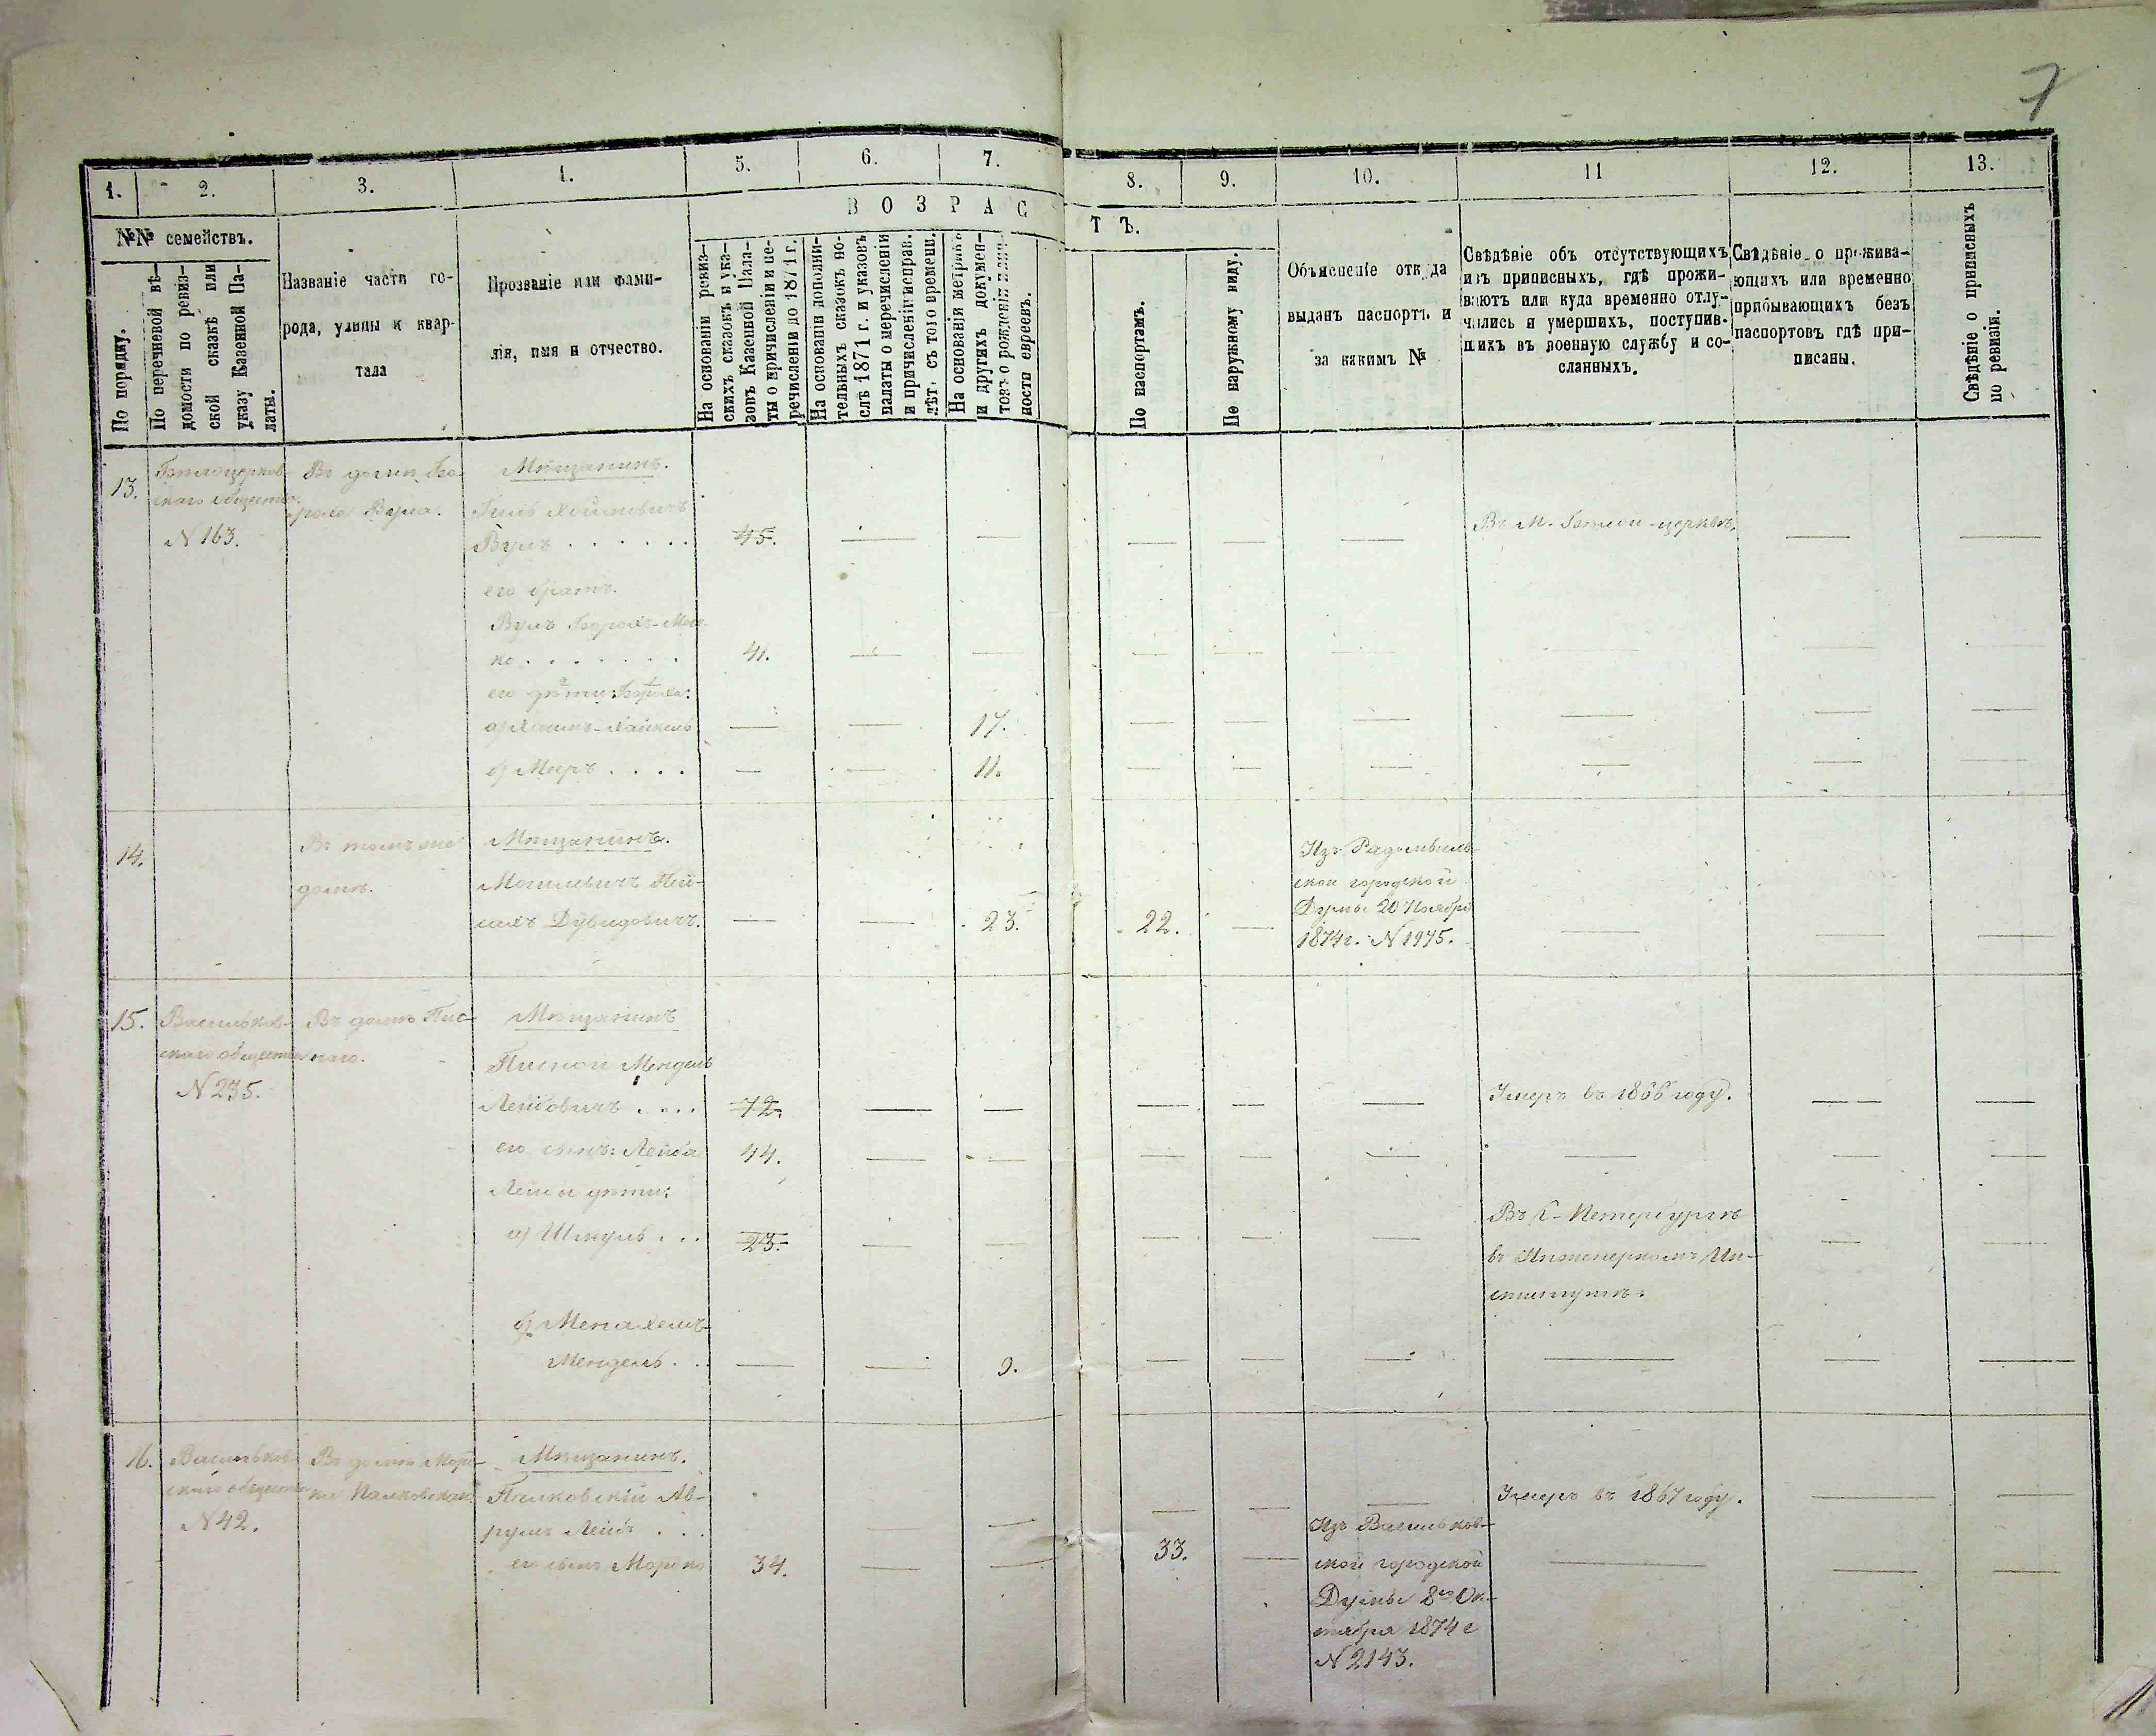 7
1. 2. 3. 4. 5. 6. 7. 8. 9. 10. 11 12. 13.
№№ семействъ.
По порядку.
По перечневой вѣ-
домости по ревиз-
ской сказкѣ или
указу Казенной Па-
латы.
Названіе части го-
рода, улицы и квар-
тала
Прозваніе или фами-
лія, имя и отчество.
ВОЗРАСТЪ.
На основаніи ревиз-
скихъ сказокъ и ука-
зовъ Казенной Пала-
ты о причисленіи и пе-
речисленіи до 1871 г.
На основаніи дополни-
тельныхъ сказокъ по-
слѣ 1871 г. и указовъ
палаты о перечисленіи
и причисленіи исправ.
лѣтъ съ того времени.
На основаніи метрикъ
и другихъ докумен-
товъ о рожденіи
ности евреевъ.
По паспортамъ.
По наружному виду.
Объясненіе откуда
выданъ паспортъ и
за какимъ №
Свѣдѣніе объ отсутствующихъ
изъ приписныхъ, гдѣ прожи-
ваютъ или куда временно отлу-
чились и умершихъ, поступив-
шихъ въ военную службу и со-
сланныхъ.
Свѣдѣніе о прожива-
ющихъ или временно
прибывающихъ безъ
паспортовъ гдѣ при-
писаны.
Свѣдѣніе о приписныхъ
по ревизіи.
13.
Бѣлоцерков-
скаго общества
N 163.
Въ домѣ Бо-
роха Вула.
Мѣщанинъ.
Вулъ . . . . . . 45.
Въ М. Бѣлой-церквѣ.
его братъ.
Вулъ Борохъ-Мош-
ко . . . . . . . 41.
его дѣти: Бороха:
а) Хаимъ-Хайкель 17.
б) Мееръ . . . . 11.
14.
Въ томъ же
домѣ.
Мѣщанинъ.
Дувидовичъ. 23. 22.
Изъ Радомысль-
ской городской
Думы 20 Ноября
1874 г. N 1975.
15.
Васильков-
скаго общества
N 235.
Въ домѣ Пис-
наго.
Мѣщанинъ
Писной Мендель
Лейбовичъ . . . . 72.
Умеръ въ 1866 году.
его сынъ: Лейба 44.
Лейбы дѣти:
а) Шмуль . . . 23.
Въ С-Петербургѣ
въ Инженерномъ Ин-
ститутѣ.
б) Менахемъ-
Мендель . . 9.
16.
Васильков-
скаго общества
N 42.
Въ домѣ Морд-
ка Палковскаго
Мѣщанинъ.
Палковскій Ав-
румъ Лейб . . .
Умеръ въ 1867 году.
его сынъ Мордко 34. 33.
Изъ Васильков-
ской городской
Думы 8го Ок-
тября 1874 г
N 2143.